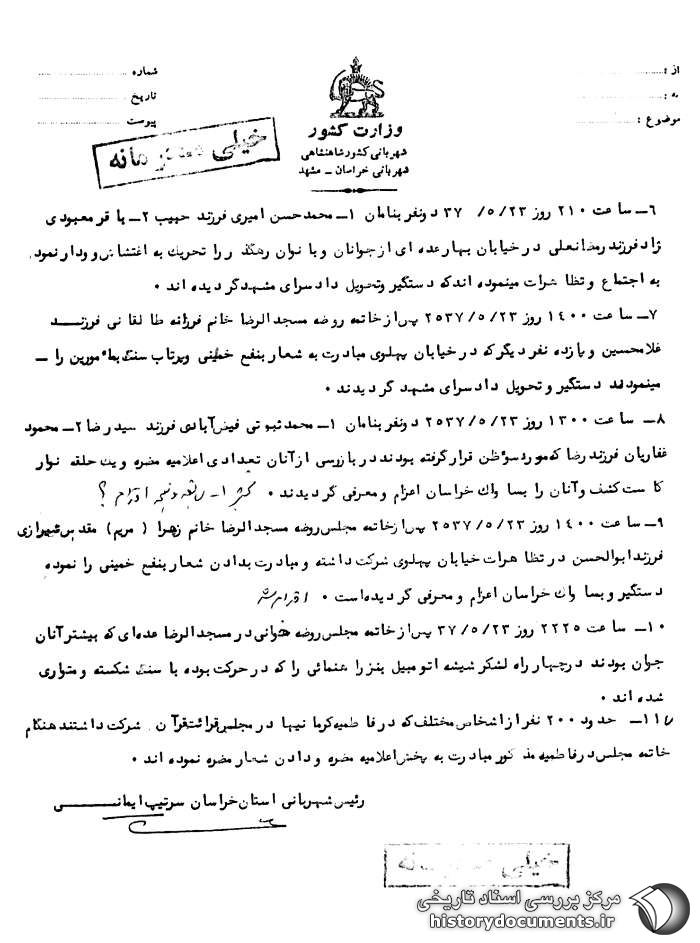 از :
به :
موضوع :
شماره
تاریخ
پیوست
وزارت کشور
شهربانی کشور شاهنشاهی
شهربانی خراسان - مشهد
خیلی محرمانه
۶- ساعت ۲۱۰ روز ۳۷/۵/۲۳ دونفر بنامان ۱- محمدحسن امیری فرزند حبیب ۲- باقر معبودی
نژاد فرزند رمضانعلی در خیابان بهار عده ای از جوانان و بانوان رهگذر را تحریک به اغتشاش و ودار نمود.
به اجتماع و تظاهرات مینموده اند که دستگیر و تحویل دادسرای مشهد گردیده اند ۰
۷- ساعت ۱۴۰۰ روز ۲۵۳۷/۵/۲۳ پس از خاتمه روضه مسجد الرضا خانم فرزانه طالقانی فرزند
غلامحسین و یازده نفر دیگر که در خیابان پهلوی مبادرت به شعار بنفع خمینی و پرتاب سنگ بمامورین را -
مینمودند دستگیر و تحویل دادسرای مشهد گردیدند ۰
۸- ساعت ۱۳۰۰ روز ۲۵۳۷/۵/۲۳ دونفر بنامان ۱- محمد ثبوتی فیض آبادی فرزند سیدرضا ۲- محمود
غفاریان فرزند رضا که مورد سوءظن قرار گرفته بودند در بازرسی از آنان تعدادی اعلامیه مضره و یک حلقه نوار
کاست کشف و آنان را بساواک خراسان اعزام و معرفی گردیدند ۰ اقدام ؟
۹- ساعت ۱۴۰۰ روز ۲۵۳۷/۵/۲۳ پس از خاتمه مجلس روضه مسجد الرضا خانم زهرا ( مریم ) مقدس شیرازی
فرزند ابوالحسن در تظاهرات خیابان پهلوی شرکت داشته و مبادرت بدادن شعار بنفع خمینی را نموده
دستگیر و بساواک خراسان اعزام و معرفی گردیده است ۰ اقدام شد
۱۰- ساعت ۲۲۲۵ روز ۳۷/۵/۲۳ پس از خاتمه مجلس روضه خوانی در مسجد الرضا عده ای که بیشتر آنان
جوان بودند در چهار راه لشکر شیشه اتومبیل بنز راهنمائی را که در حرکت بوده با سنگ شکسته و متواری
شده اند ۰
۱۱- حدود ۲۰۰ نفر از اشخاص مختلف که در فاطمیه کرمانیها در مجلس قرائت قرآن شرکت داشتند هنگام
خاتمه مجلس در فاطمیه مذکور مبادرت به پخش اعلامیه مضره و دادن شعار مضره نموده اند ۰
رئیس شهربانی استان خراسان سرتیپ ایمانی
خیلی محرمانه
مرکز بررسی اسناد تاریخی
historydocuments.ir